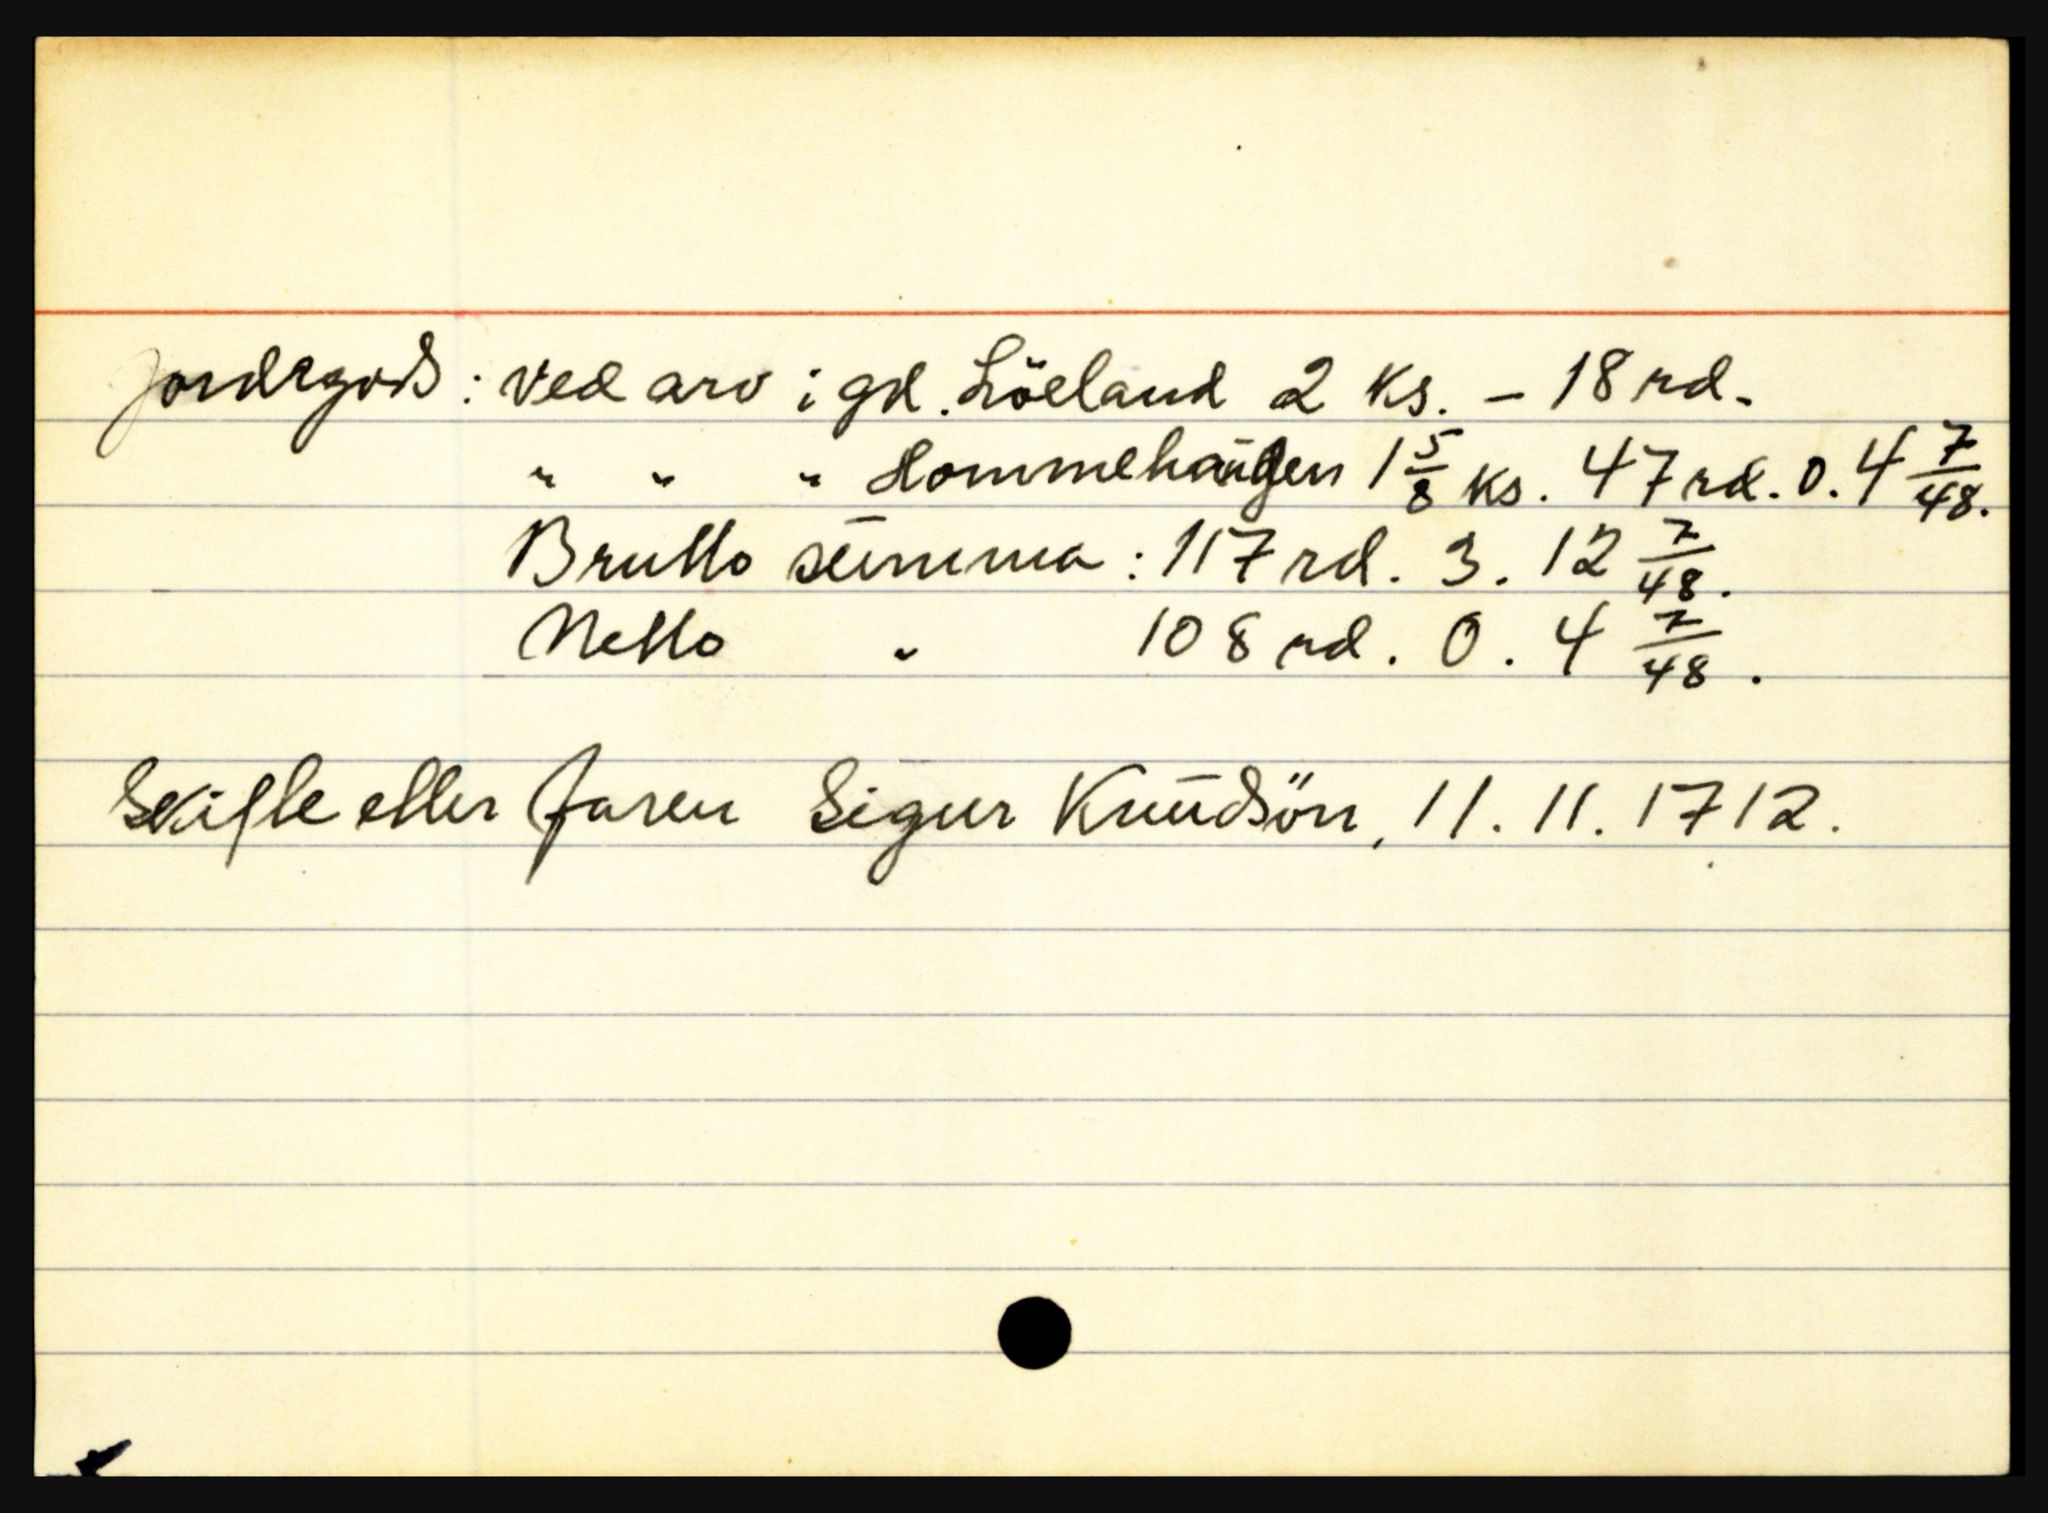 Jordegods: ved arv i gd. Löeland 2 ks. - 18 rd.
" " " Hommelhaugen 1 5/8 ks. 47 rd. 0. 4 7/48.
Brutto summa: 117 rd. 3. 12 7/48.
Netto " 108 rd. 0. 4 7/48.
Skifte etter faren Sigur Knudsön, 11. 11. 1712.